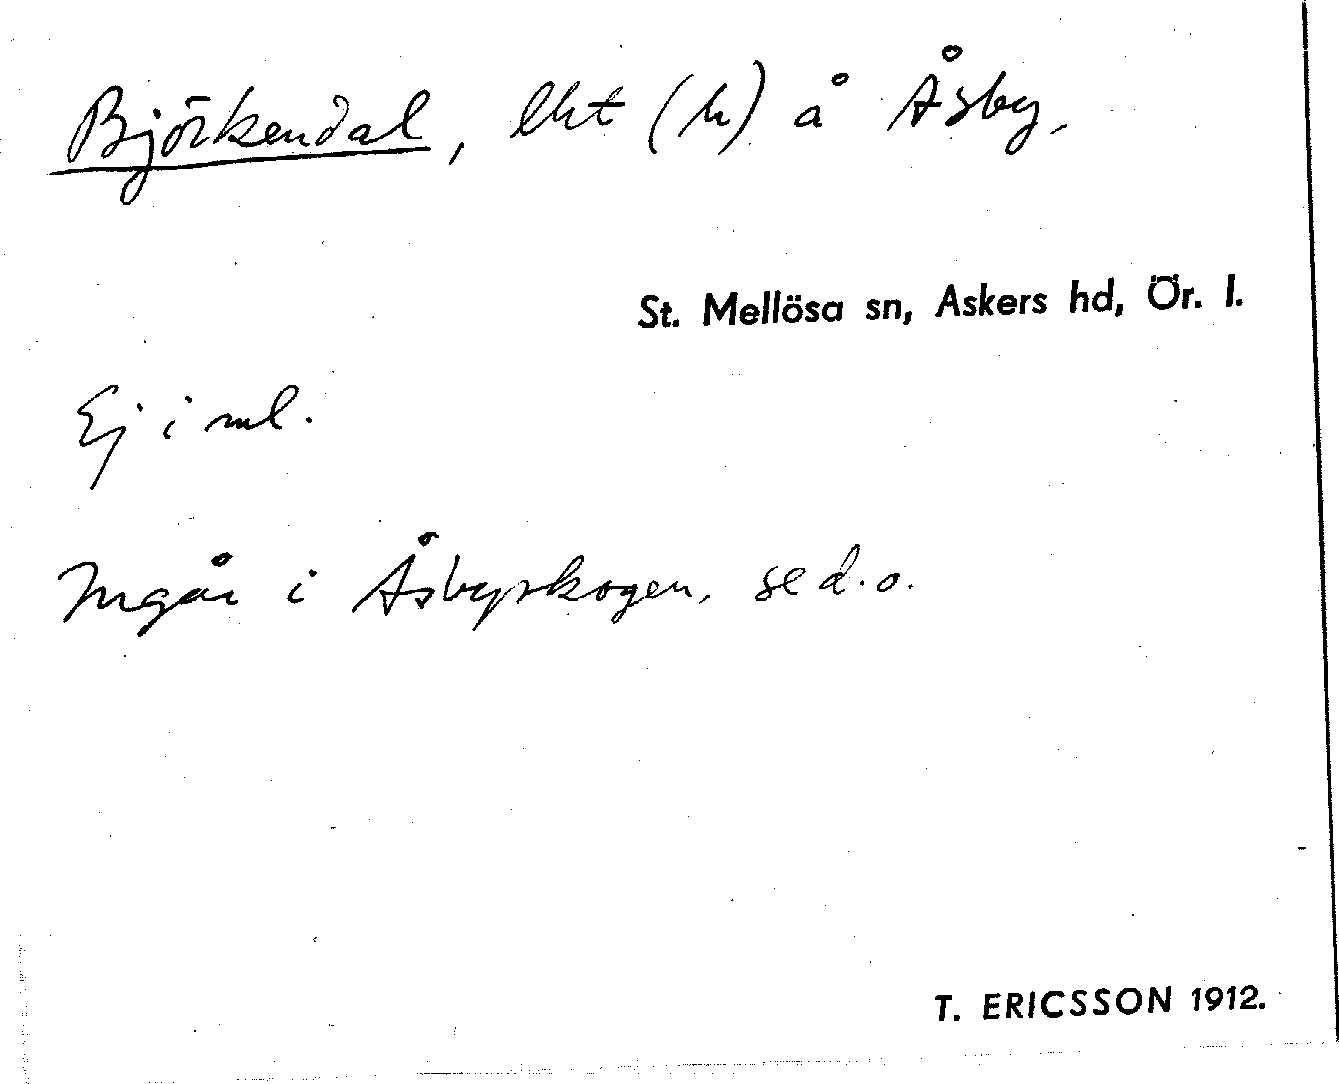 Björkendal, lht (h) å Åsby.
St. Mellösa sn, Askers hd, Ör. l.
Ej i ml.
Ingår i Åsbyskogen, se d.o.
T. ERICSSON 1912.